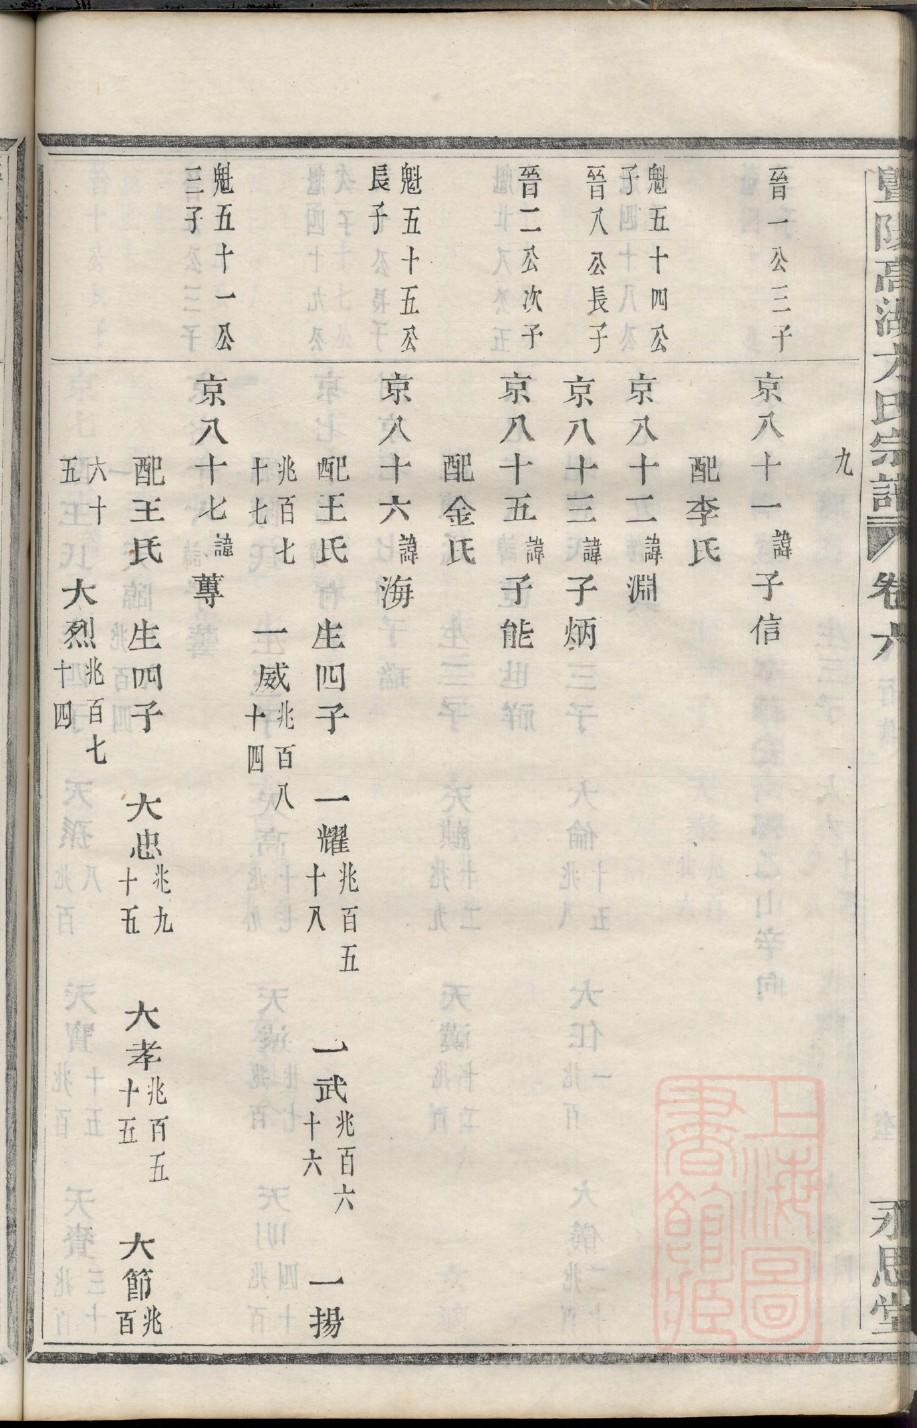 暨陽高湖方氏宗譜 卷六 永思堂
九
晉一公三子
京八十一諱子信
配李氏
魁五十四公子
京八十二諱淵
晉八公長子
京八十三諱子炳
晉二公次子
京八十五諱子能
配金氏
魁五十五公長子
京八十六諱海
配王氏 生四子 一耀兆百五十八 一武兆百六十六 一揚
兆百七十七 一威兆百八十四
魁五十一公三子
京八十七諱蓴
配王氏 生四子 大忠兆九十五 大孝兆百五十五 大節兆百
六十五 大烈兆百七十四
上海圖書館藏